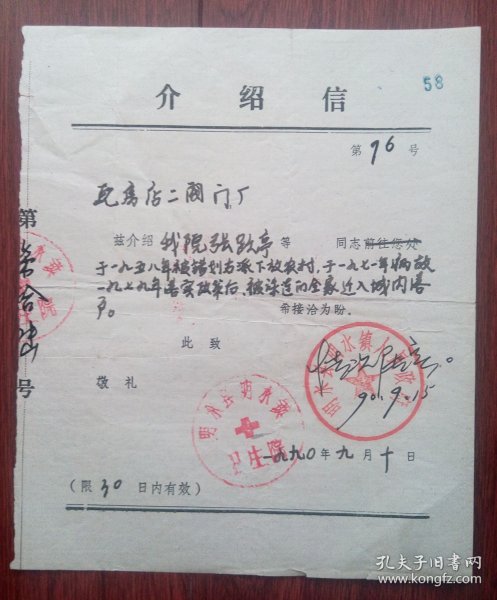 58
介绍信
第 76 号
瓦房店二阀门厂
兹介绍 我院张跃亭 等 同志前往您处
于一九五八年被错划右派下放农村，于一九七一年病故
一九七九年落实政策后，被株连的全家迁入城内落
户。 希接洽为盼。
此致
敬礼
情况属实。
90.9.15
卫生院
一九九〇年九月十日
（限30日内有效）
第
号
孔夫子旧书网
www.kongfz.com